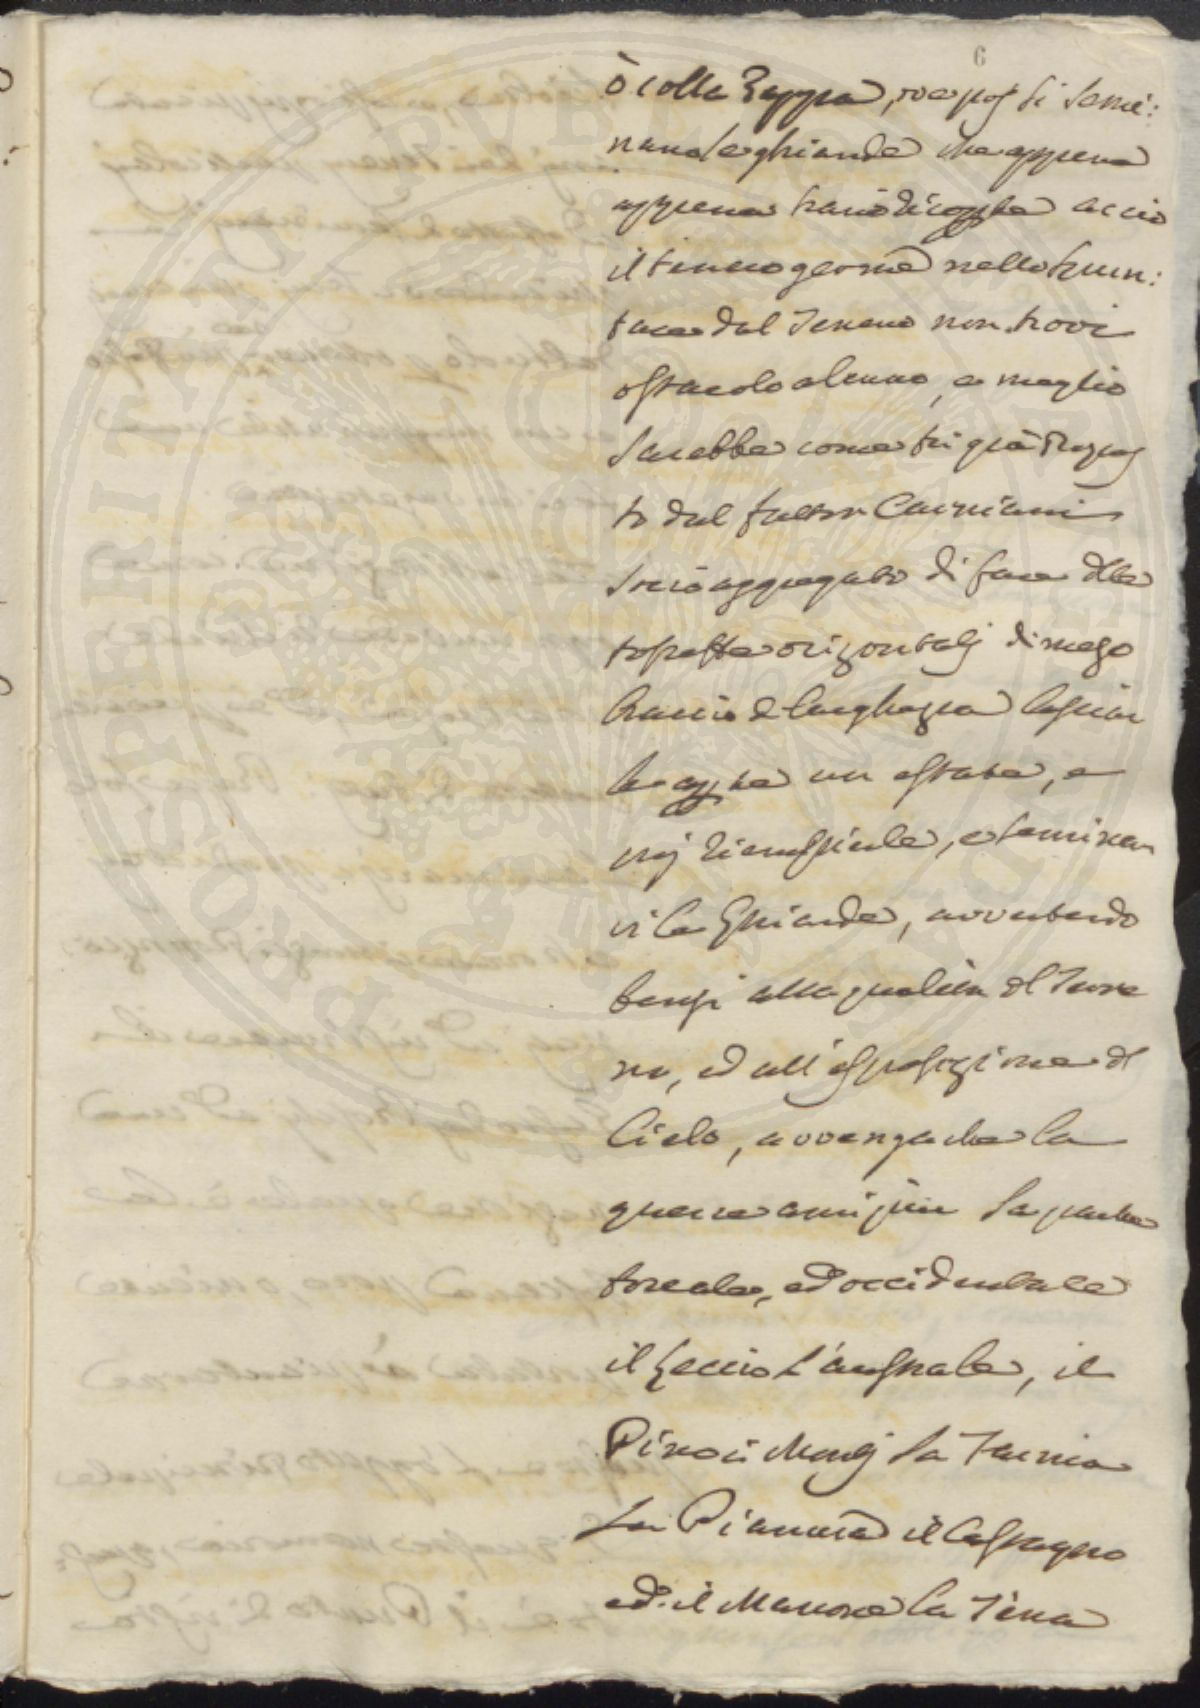 6
ò colla Zappa, ove poi si semi:
nano le ghiande che appena
appena siano ricoperte accio
il tenero germe nello spun:
tare dal Terreno non trovi
ostacolo alcuno, e meglio
sarebbe come fu già Propos
to dal fattor Carniani
Socio aggregato di fare delle
fossette orizontali di mezo
braccio di larghezza lasciar
le aperte un estate, e
poi riempirle, e seminar
vi le Ghiande, avvertendo
bensi alla qualità del Terre
no, ed all'esposizione del
Cielo, avvenga che la
querce ami più la parte
boreale, ed occidentale
il Leccio l'australe, il
Pino i Monti la Farnia
la Pianura il Castagno
ed il Marrone la Terra